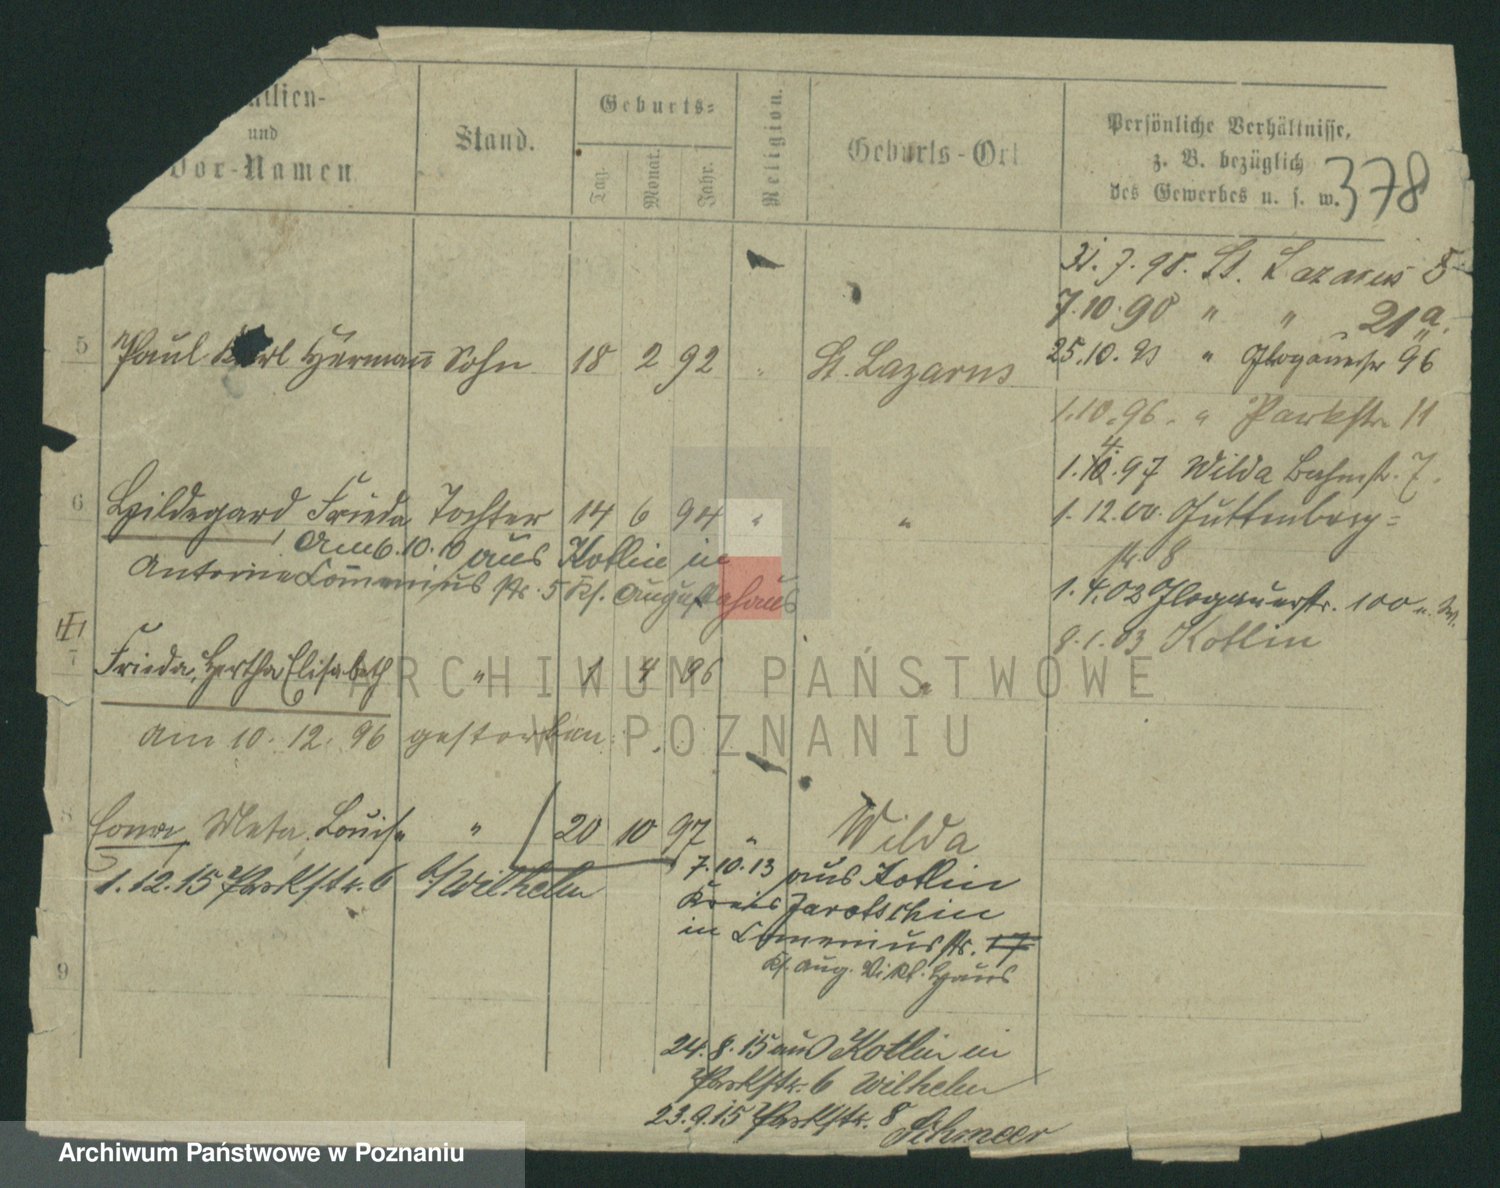 milien-
und
Vor-Namen
Stand.
Geburts-
Tag.
Monat.
Jahr.
Religion.
Geburts-Ort
Persönliche Verhältnisse,
z. B. bezüglich
des Gewerbes u. s. w.
378
31. 7. 98. St. Lazarus 5
7.10.90 " " 21a.
25.10. " Glogauerstr 96
1.10.96. " Parkstr. 11
4
1.10.97 Wilda Bahnstr. 7.
1.12.00. Guttenberg=
str. 8
1.4.02 Glogauerstr. 100
9.1.03 Kotlin
5 Paul Karl Hermann Sohn 18 2 92 " St. Lazarus
6 Hildegard Frieda Tochter 14 6 94 " "
Am 6.10.10 aus Kotlin in
Comeniusstr. 5 Augustahaus
7 Frieda, Hertha Elisabeth " 1 4 96 "
am 10. 12. 96 gestorben.
8 Meta Louise " 20 10 97 " Wilda
1.12.15 Parkstr. 6 b/Wilhelm
7.10.13 aus Kotlin
Kreis Jarotschin
in Comeniusstr. 17
Aug. Vikt. Haus
9
24.8.15 aus Kotlin in
Parkstr. 6 Wilhelm
23.9.15 Parkstr. 8
ARCHIWUM PAŃSTWOWE
W POZNANIU
Archiwum Państwowe w Poznaniu